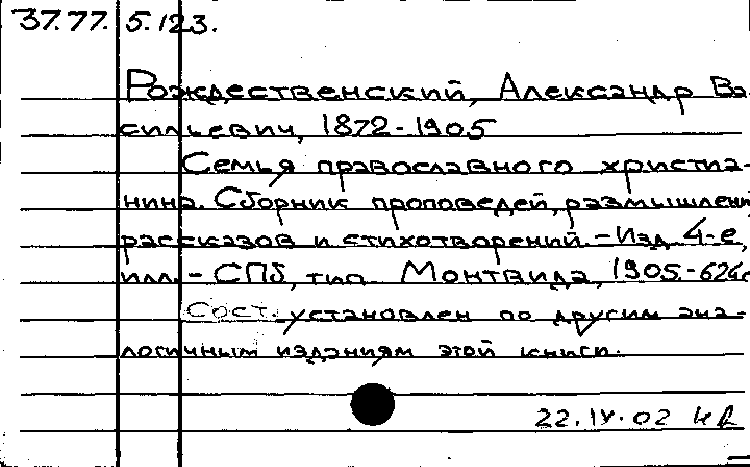 37.77. 5.123.
Рождественский, Александр Ва-
сильевич, 1872-1905
Семья православного христиа-
нина. Сборник проповедей, размышлений
рассказов и стихотворений. - Изд. 4-е,
илл. - СПб, тип. Монтвида, 1905. - 626с
Сост. установлен по другим ана-
логичным изданиям этой книги.
22.IV.02